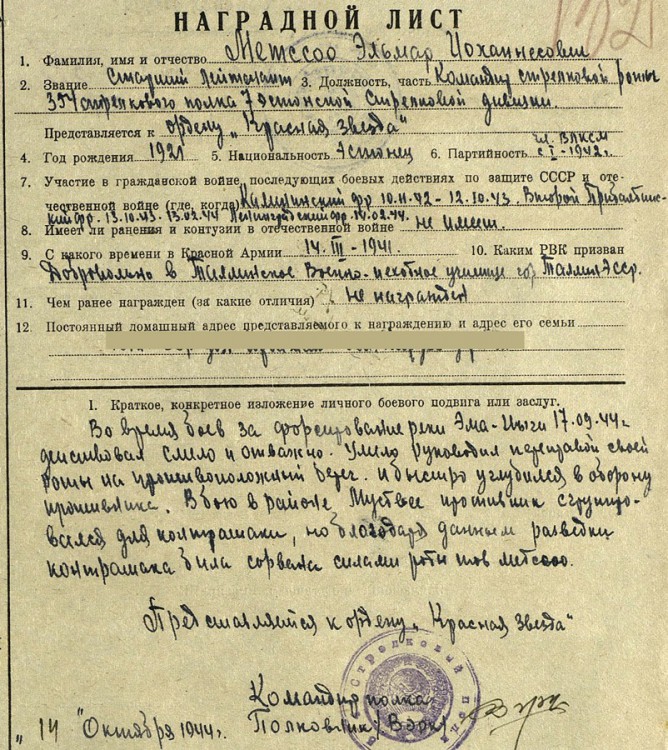 НАГРАДНОЙ ЛИСТ
1. Фамилия, имя и отчество Метссоо Эльмар Иоханнесович
2. Звание Старший лейтенант 3. Должность, часть Командир стрелковой роты
354 стрелкового полка 7 Эстонской Стрелковой дивизии
Представляется к ордену „Красная Звезда"
чл. ВЛКСМ
4. Год рождения 1921 5. Национальность Эстонец 6. Партийность с I-1942г.
7. Участие в гражданской войне, последующих боевых действиях по защите СССР и оте-
чественной войне (где, когда) Калининский фр 10.11.42 - 12.10.43. Второй Прибалтий-
кий фр. 13.10.43-13.02.44 Ленинградский фр. 14.02.44.
8. Имеет ли ранения и контузии в отечественной войне не имеет.
9. С какого времени в Красной Армии 14.III-1941. 10. Каким РВК призван
Добровольно в Таллинское Военно-пехотное училище гор Таллин Эсср.
11. Чем ранее награжден (за какие отличия) не награжден
12. Постоянный домашный адрес представляемого к награждению и адрес его семьи
I. Краткое, конкретное изложение личного боевого подвига или заслуг.
Во время боев за форсирование реки Эма-Иыги 17.09.44г.
действовал смело и отважно. Умело руководил переправой своей
роты на противоположный берег и быстро углубился в оборону
противника. В бою в районе Муствее противник сгруппиро-
вался для контратаки, но благодаря данным разведки
контратака была сорвана силами роты тов Метссоо.
Представляется к ордену „Красная Звезда"
Командир полка
„14" Октября 1944г. Полковник /Вырк/
Стрелковый полк